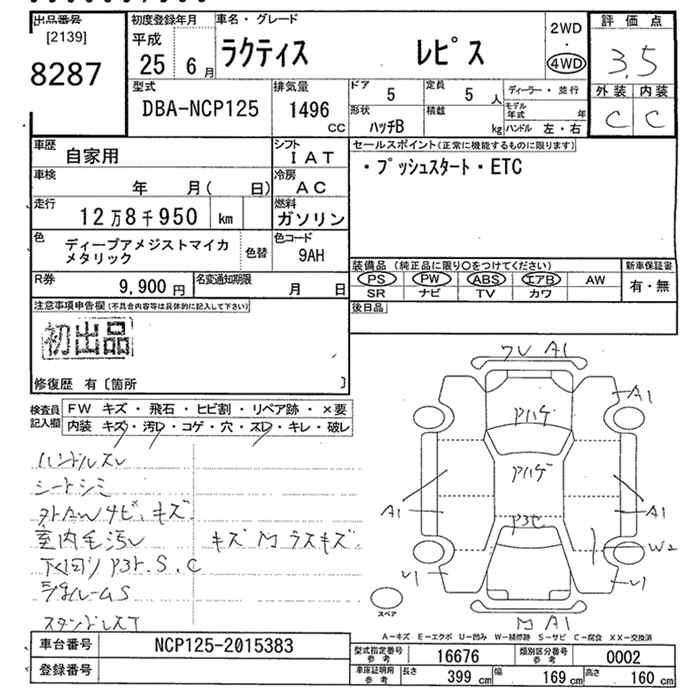 出品番号 初度登録年月 車名・グレード 2WD 評価点
[2139] 平成 ・
8287 25 6月 ラクティス レピス 4WD 3.5
型式 排気量 ドア 5 定員 5人 ディーラー・並行 外装 内装
DBA-NCP125 1496 cc 形状 ハッチB 積載 kg モデル年式 年 ハンドル 左・右 C C
車歴 自家用 シフト IAT セールスポイント(正常に機能するものに限ります)
車検 年 月( 日) 冷房 AC ・プッシュスタート・ETC
走行 12万8千950 km 燃料 ガソリン
色 ディープアメジストマイカメタリック 色替 色コード 9AH
装備品(純正品に限り○をつけてください) 新車保証書
R券 9,900円 名変通知期限 月 日 PS PW ABS エアB AW 有・無
SR ナビ TV カワ
注意事項申告欄(不具合内容等は具体的に記入して下さい) 後日品
初出品
修復歴 有〔箇所 〕
検査員記入欄 FW キズ・飛石・ヒビ割・リペア跡・×要
内装 キズ・汚レ・コゲ・穴・スレ・キレ・破レ
ワレ A1
A1
Pハゲ
Pハゲ
P3C
A1 A1
W2
U1 U1
M A1
ハンドルスレ
シートシミ
外AWサビ、キズ
室内毛汚レ キズ M ラスキズ
下回りP3ト.S.C
スペア
A-キズ E-エクボ U-凹み W-補修跡 S-サビ C-腐食 XX-交換済
車台番号 NCP125-2015383 型式指定番号 参考 16676 類別区分番号 参考 0002
登録番号 車庫証明用 参考 長さ 399 cm 幅 169 cm 高さ 160 cm